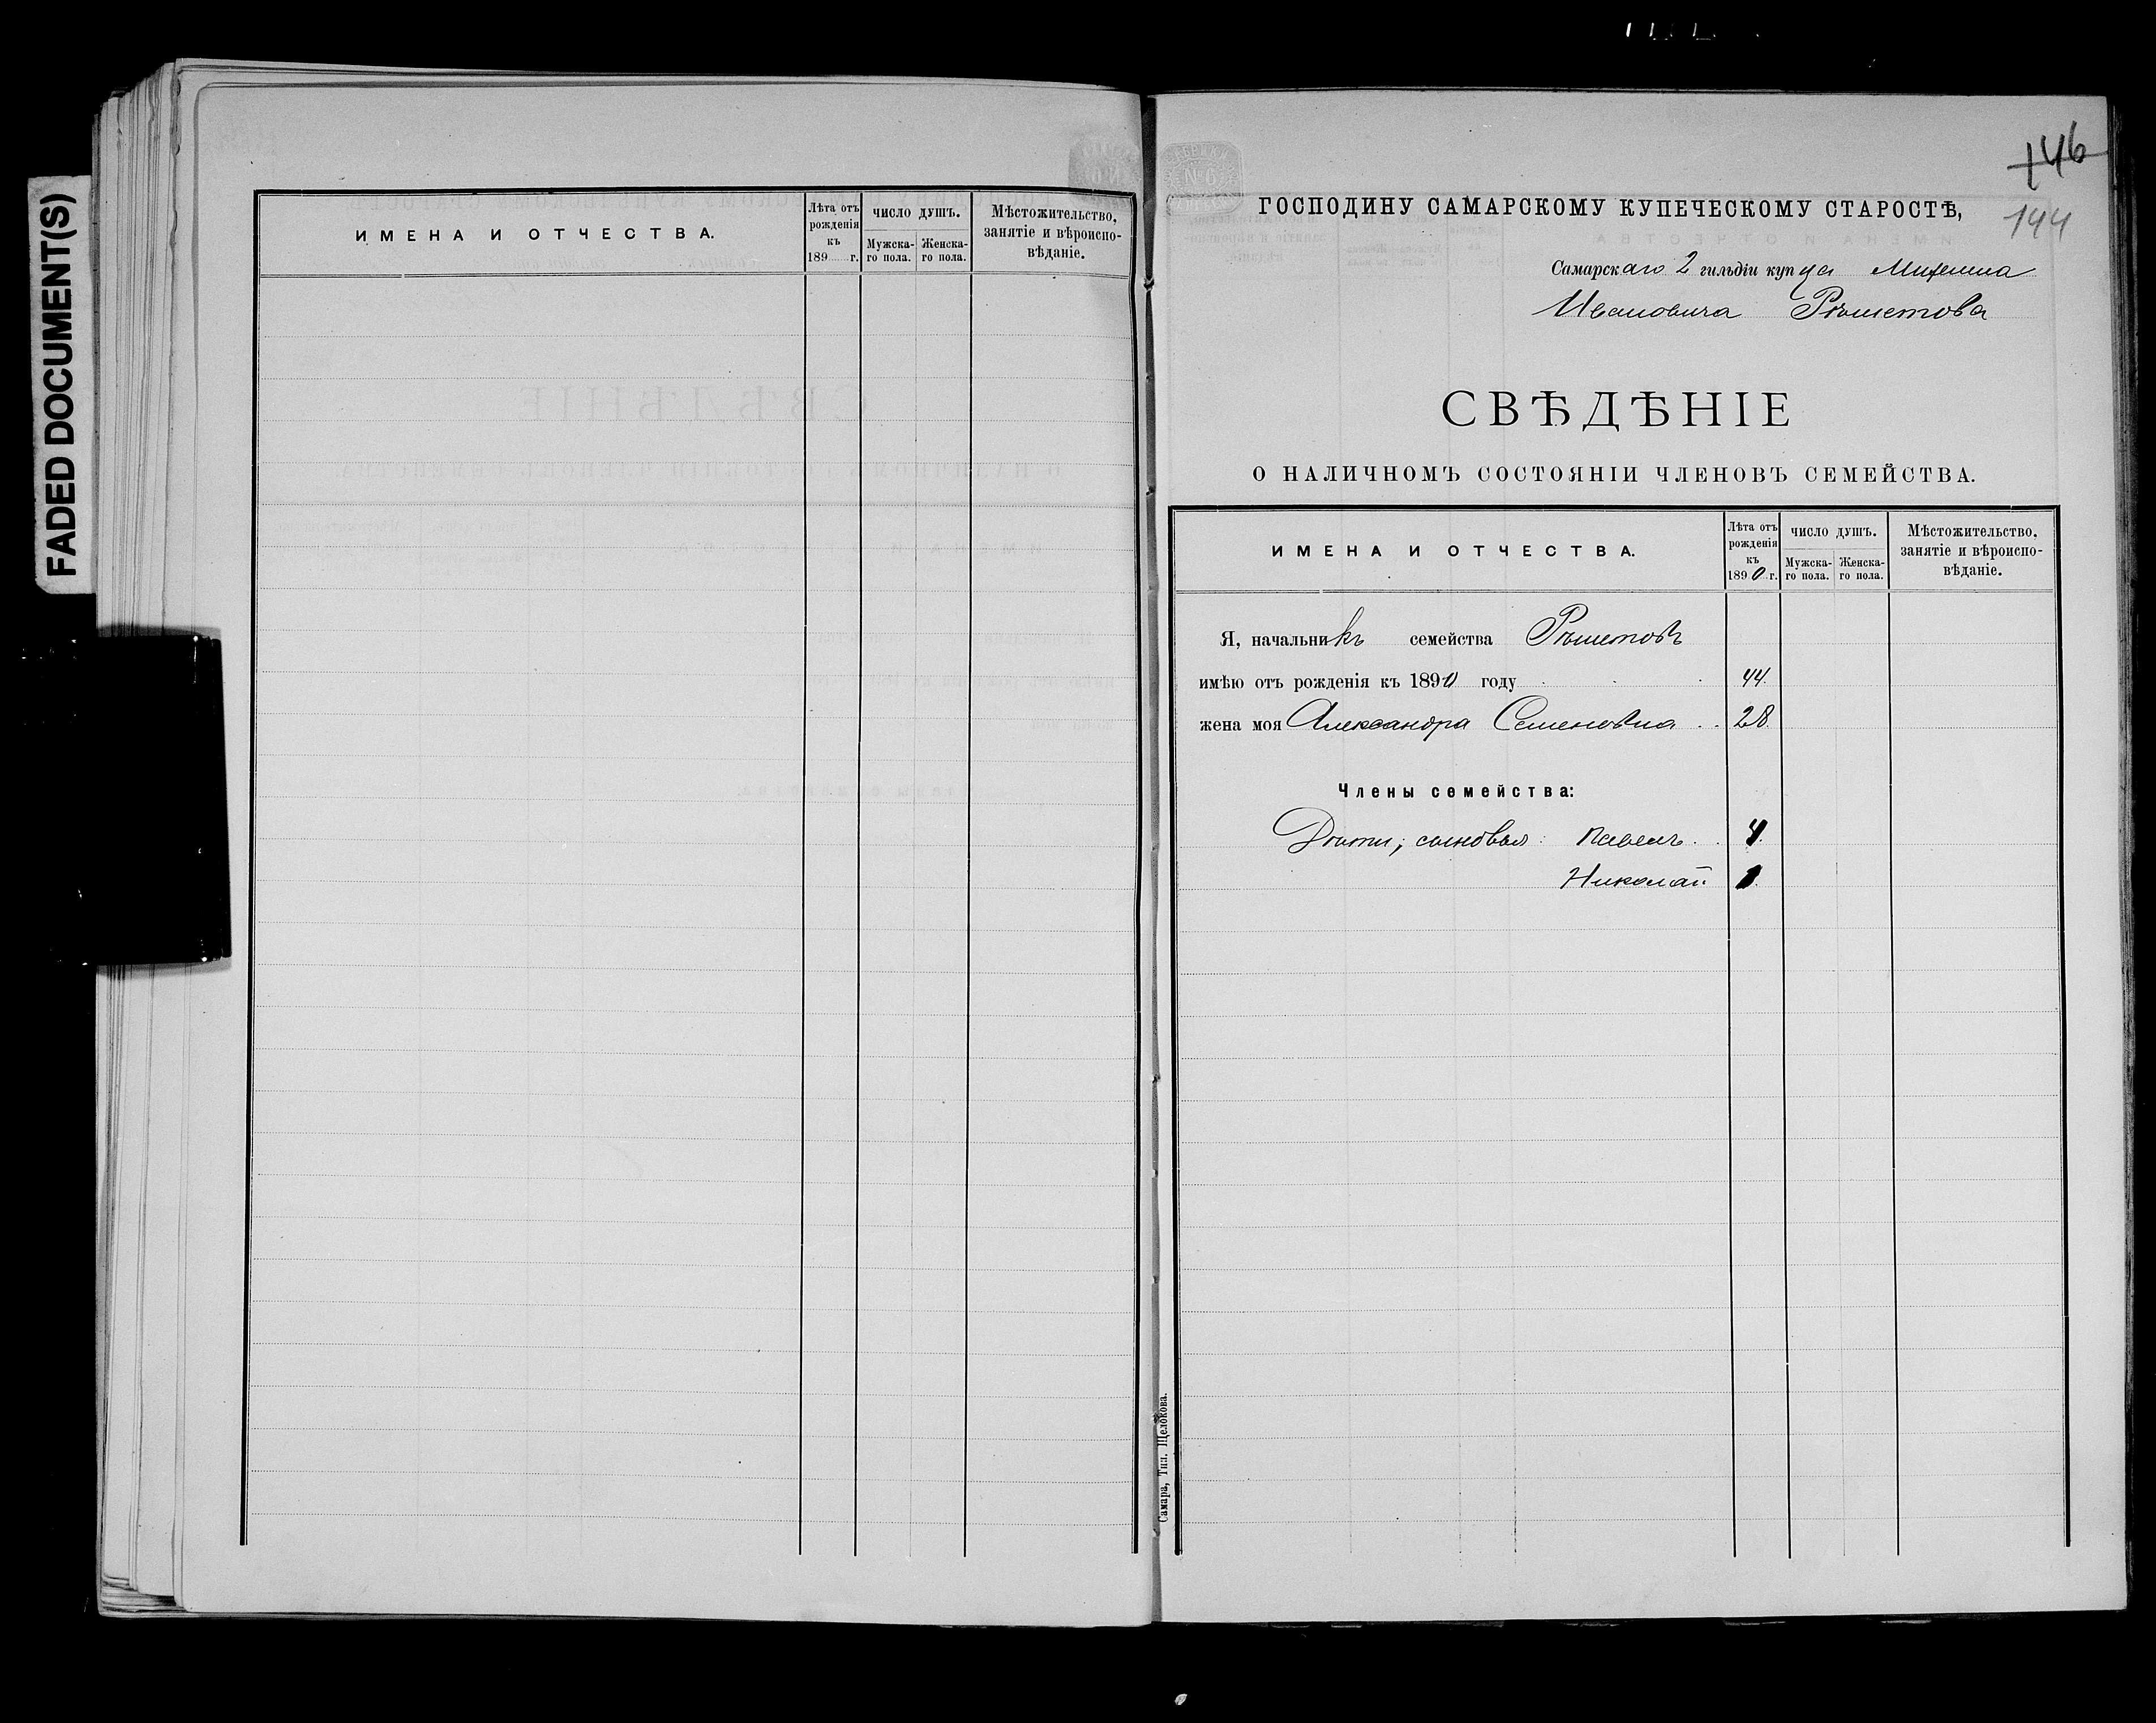 FADED DOCUMENT(S)
ИМЕНА И ОТЧЕСТВА.
Лѣта отъ рожденія къ 189 г.
ЧИСЛО ДУШЪ.
Мужска-го пола.
Женска-го пола.
Мѣстожительство, занятіе и вѣроиспо-вѣданіе.
146
144
№ 6
ГОСПОДИНУ САМАРСКОМУ КУПЕЧЕСКОМУ СТАРОСТѢ,
Самарскаго 2 гильдіи купца
Ивановича Рѣшетова
СВѢДѢНІЕ
О НАЛИЧНОМЪ СОСТОЯНІИ ЧЛЕНОВЪ СЕМЕЙСТВА.
ИМЕНА И ОТЧЕСТВА.
Лѣта отъ рожденія къ 1890 г.
ЧИСЛО ДУШЪ.
Мужска-го пола.
Женска-го пола.
Мѣстожительство, занятіе и вѣроиспо-вѣданіе.
Я, начальникъ семейства Рѣшетовъ
имѣю отъ рожденія къ 1890 году 44.
жена моя Александра Семеновна 28.
Члены семейства:
Дѣти; сыновья: Павелъ 4.
Николай 1.
Самара, Тип. Щелокова.